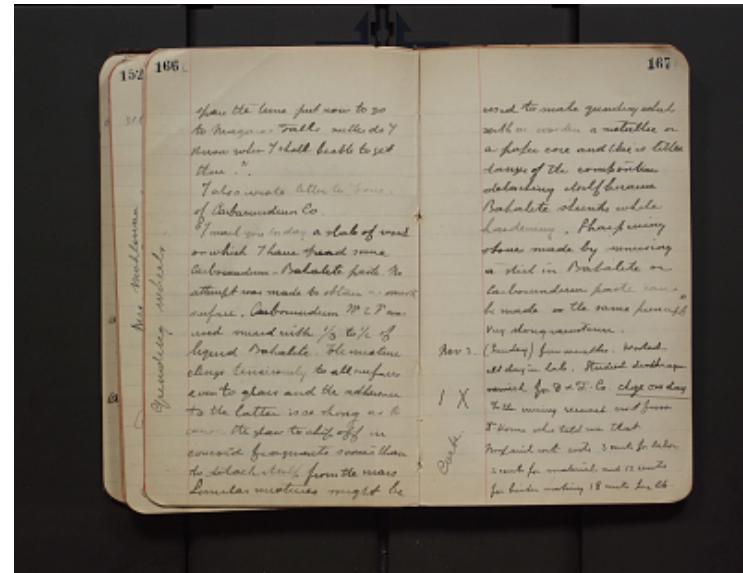 152
166
spare the time just now to go
to Niagara Falls neither do I
know when I shall be able to get
there".
I also wrote letter to
of Carborundum Co.
"I mail you today a slab of wood
on which I have spread some
Carborundum-Bakalite paste No
attempt was made to obtain a smooth
surface. Carborundum No 2 F was
used mixed with 1/3 to 1/2 of
liquid Bakalite. The mixture
clings tenaciously to all surfaces
even to glass and the adherence
to the latter is so strong as to
cause the glass to chip off in
conical fragments sooner than
to detach itself from the mass
Similar mixtures might be
Grinding wheels
167
used to make grinding wheels
with a wooden a metallic or
a paper core and there is little
danger of the composition
detaching itself because
Bakalite shrinks while
hardening. Sharpening
stones made by immersing
a stick in Bakalite or
Carborundum paste can
be made on the same principle"
Very strong
Nov 3. (Sunday) fine weather. Worked
all day in lab. Studied
varnish for D & F. Co. chge one day
1 X
In the evening received visit from
who told me that
3 cents for labor
2 cents for material and 13 cents
for binder making 18 cents per lb.
Cork